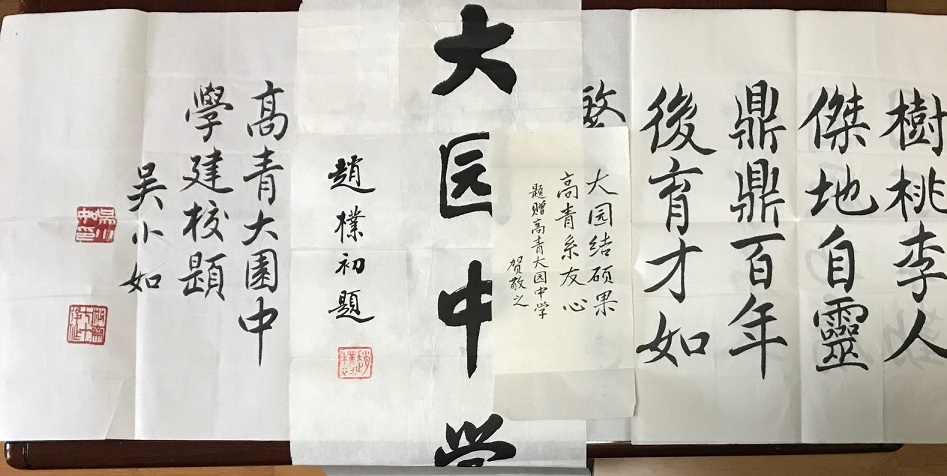 樹桃李人
傑地自靈
鼎鼎百年
後育才如
大园结硕果
高青系友心
题赠高青大园中学
贺敬之
大园中学
趙樸初題
高青大園中
學建校題
吴小如